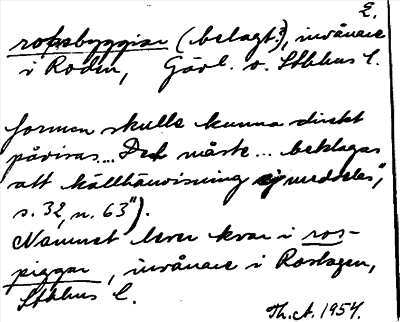 E.
rodhsbyggiar (belagt?), invånare
i Roden, Gävl. o. Sthlms l.
formen skulle kunna direkt
påvisas... Det måste ... beklagas
att källhänvisning ej meddeles",
s. 32, n. 63").
Namnet lever kvar i ros-
piggar, invånare i Roslagen,
Sthlms l.
Th. A. 1954.